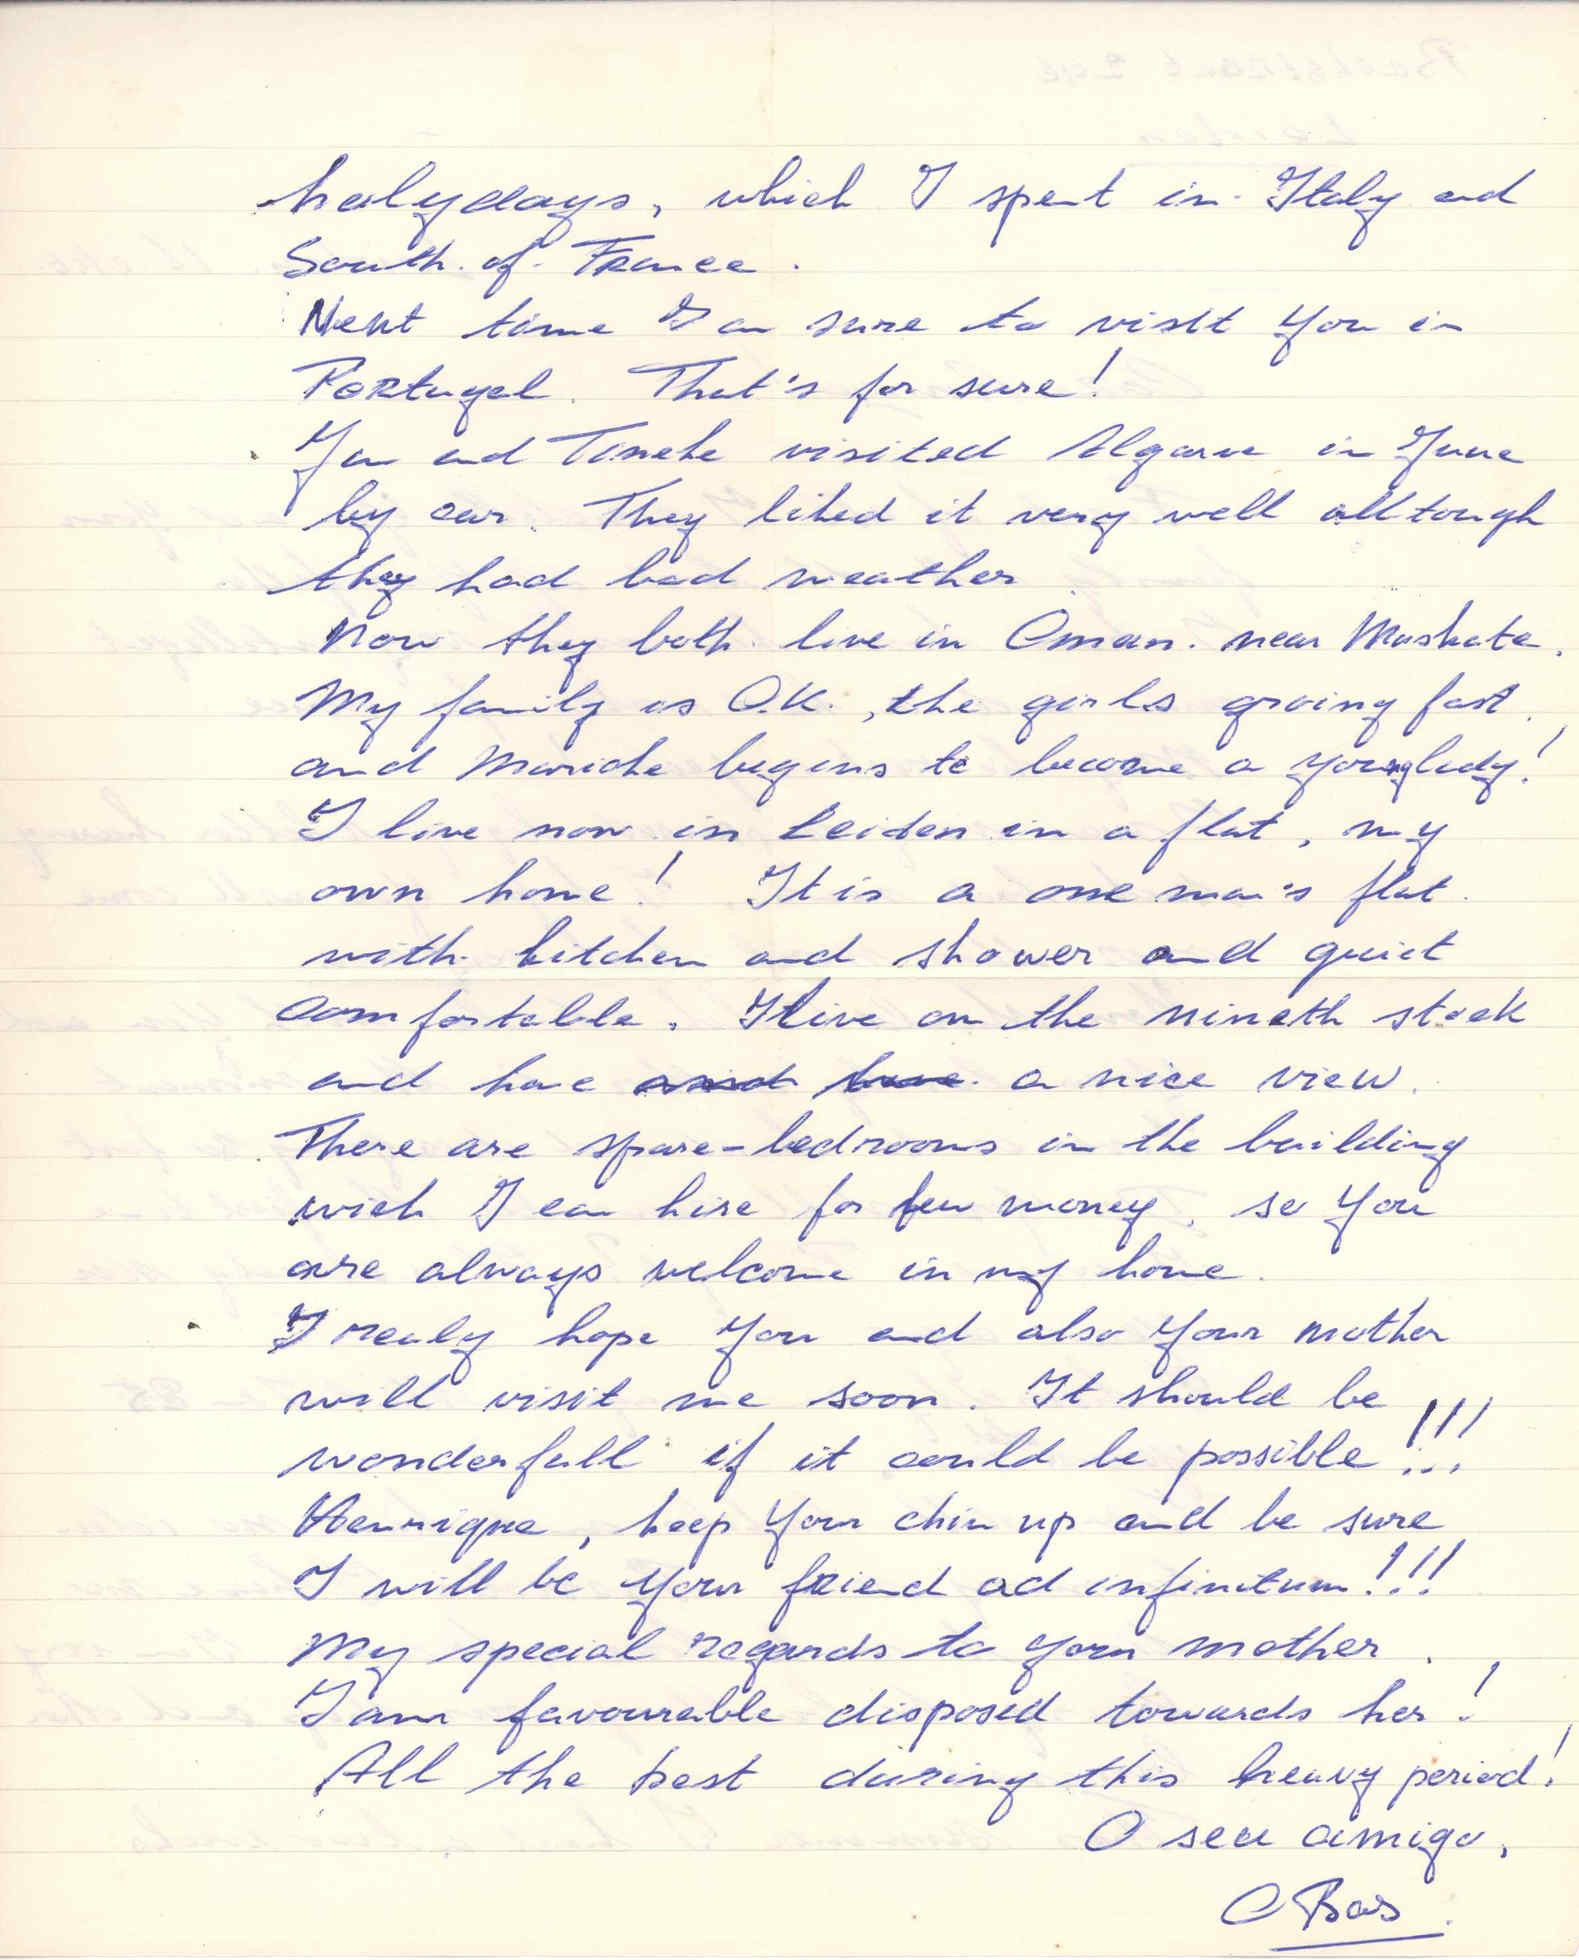 holydays, which I spent in Italy and
South of France.
Next time I am sure to visit you in
Portugal. That's for sure!
Jan and Tineke visited Algarve in June
by car. They liked it very well alltough
they had bad weather
Now they both live in Oman. near Muskate.
My family is O.K., the girls growing fast,
and Marieke begins to become a younglady!
I live now in Leiden in a flat, my
own home! It is a one man's flat
with kitchen and shower and quiet
comfortable. I live on the nineth stock
and have and have a nice view.
There are spare-bedrooms in the building
wich I can hire for few money, so you
are always welcome in my home.
I realy hope you and also your mother
will visit me soon. It should be
wonderfull if it could be possible!!!
Henrique, keep your chin up and be sure
I will be your friend ad infinitum!!!
My special regards to your mother.
I am favourable disposed towards her!
All the best during this heavy period!
O seu amigo,
Bas